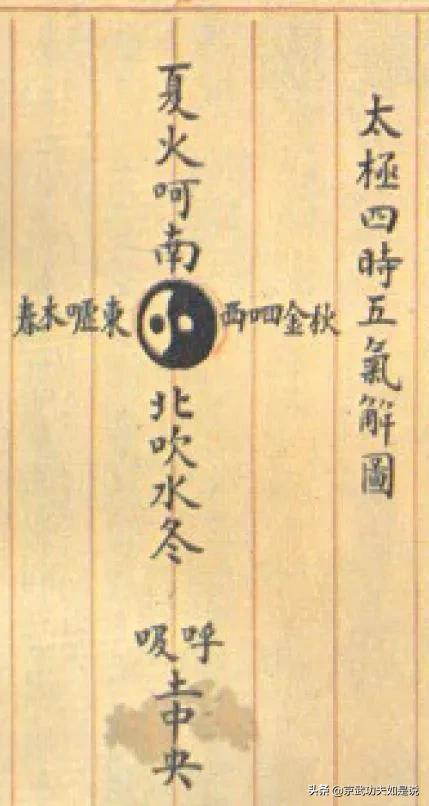 太極四時五氣解圖
夏火呵南
春木噓東
西呬金秋
北吹水冬
呼吸
土中央
头条 @京武功夫如是说